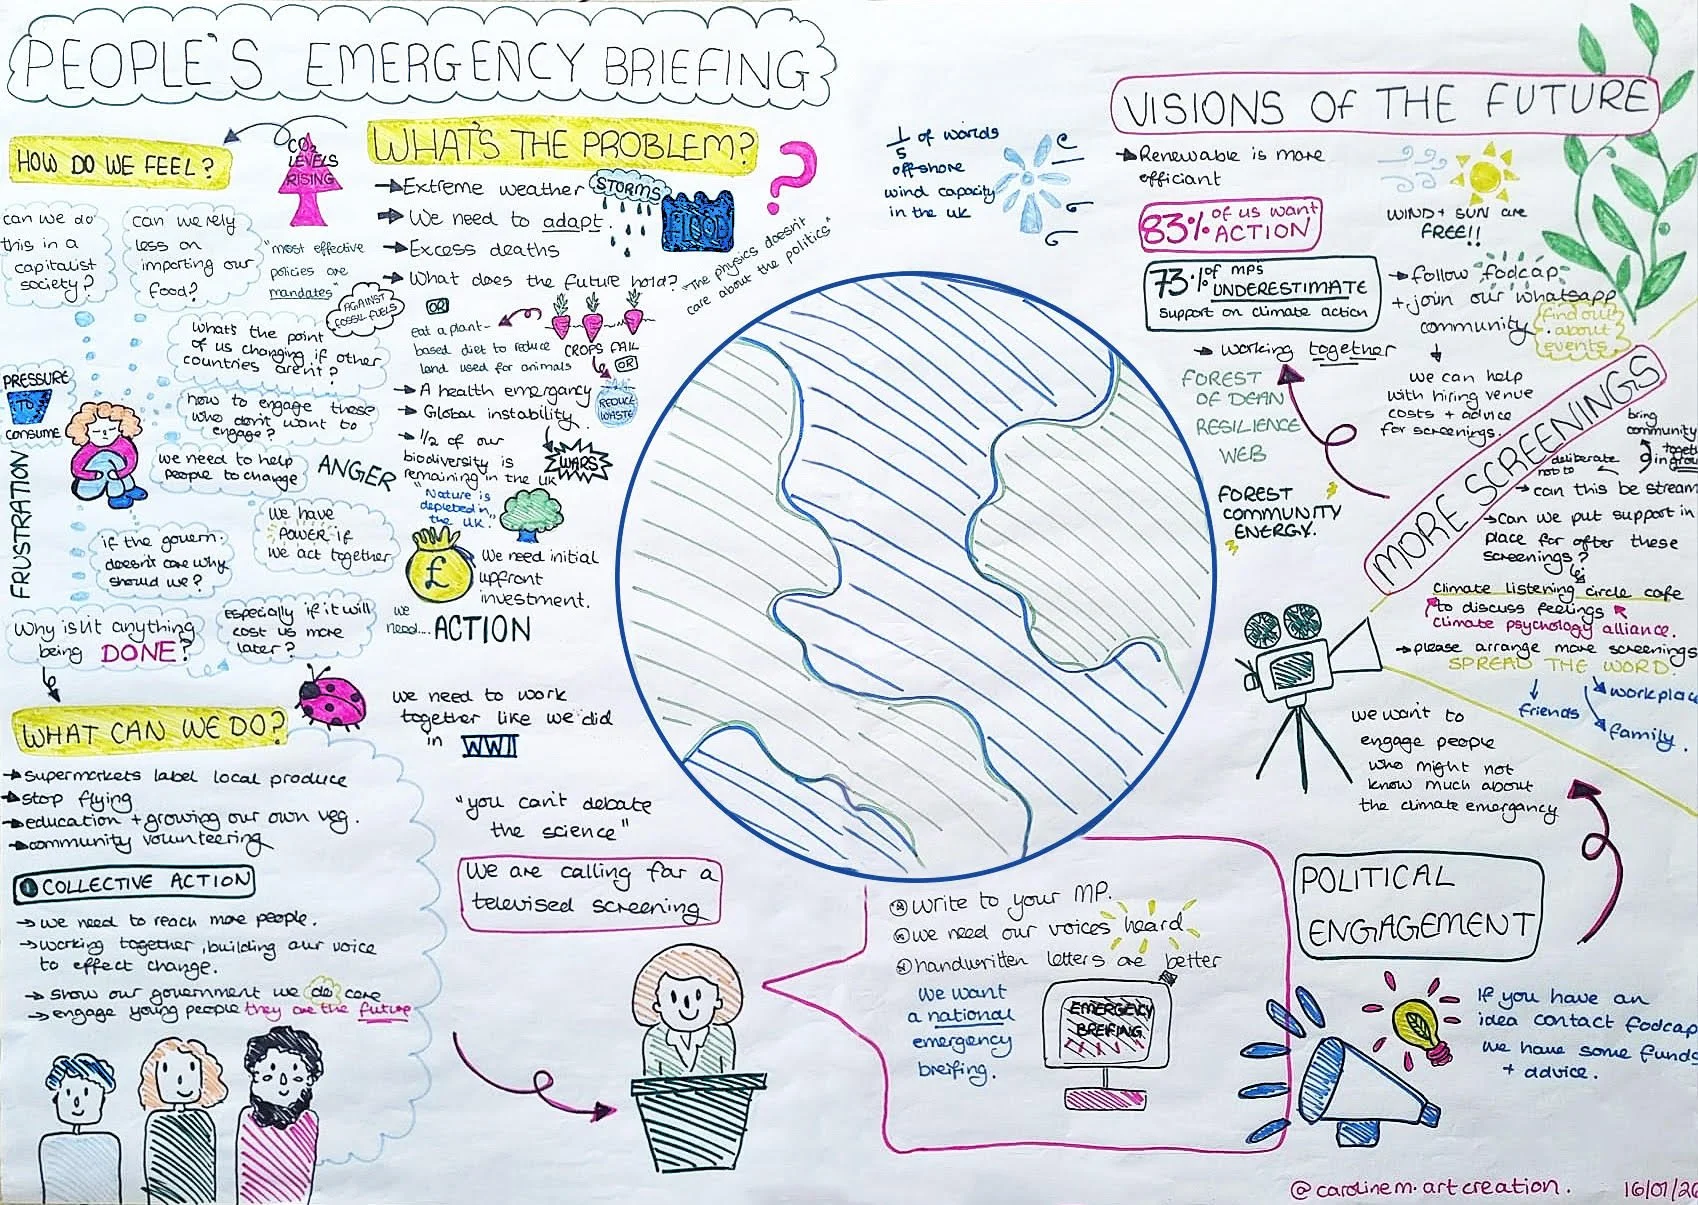 PEOPLE'S EMERGENCY BRIEFING
HOW DO WE FEEL?
CO2
LEVELS
RISING
can we do
this in a
capitalist
society?
can we rely
less on
importing our
food?
"most effective
policies are
mandates"
AGAINST
FOSSIL FUELS
what's the point
of us changing if other
countries aren't?
PRESSURE
TO
CONSUME
how to engage those
who don't want to
engage?
we need to help
people to change
ANGER
FRUSTRATION
we have
POWER if
we act together
if the govern.
doesn't care why
should we?
Why is it anything
being DONE?
especially if it will
cost us more
later?
WHAT'S THE PROBLEM?
Extreme weather
STORMS
We need to adapt.
FLOOD
Excess deaths
What does the future hold?
"The physics doesn't
care about the politics"
OR
eat a plant-
based diet to reduce
land used for animals
CROPS FAIL
OR
REDUCE
WASTE
A health emergancy
Global instability.
WARS
1/2 of our
biodiversity is
remaining in the UK
"Nature is
depleted in
the UK."
£
We need initial
upfront
investment.
we
need... ACTION
we need to work
together like we did
in WWII
"you can't debate
the science"
We are calling for a
televised screening
WHAT CAN WE DO?
supermarkets label local produce
stop flying
education + growing our own veg.
community volunteering
1 COLLECTIVE ACTION
we need to reach more people.
working together, building our voice
to effect change.
show our government we do care
engage young people they are the future
1/5 of worlds
offshore
wind capacity
in the uk
VISIONS OF THE FUTURE
Renewable is more
efficiant
WIND + SUN are
FREE!!
83% of us want
ACTION
73% of MP's
UNDERESTIMATE
support on climate action
follow fodcap
+ join our whatsapp
community
find out
about
events
working together
FOREST
OF DEAN
RESILIENCE
WEB
FOREST
COMMUNITY
ENERGY.
we can help
with hiring venue
costs + advice
for screenings.
MORE SCREENINGS
bring
community
together
in group
deliberate
not to
can this be stream
Can we put support in
place for after these
screenings?
climate listening circle cafe
to discuss feelings
climate psychology alliance.
please arrange more screenings
SPREAD THE WORD
friends
workplac
family.
we want to
engage people
who might not
know much about
the climate emergancy
POLITICAL
ENGAGEMENT
write to your MP.
we need our voices heard
handwritten letters are better
we want
a national
emergency
breifing.
EMERGENCY
BREIFING
If you have an
idea contact fodcap
we have some funds
+ advice.
@carolinem.artcreation.
16/01/26